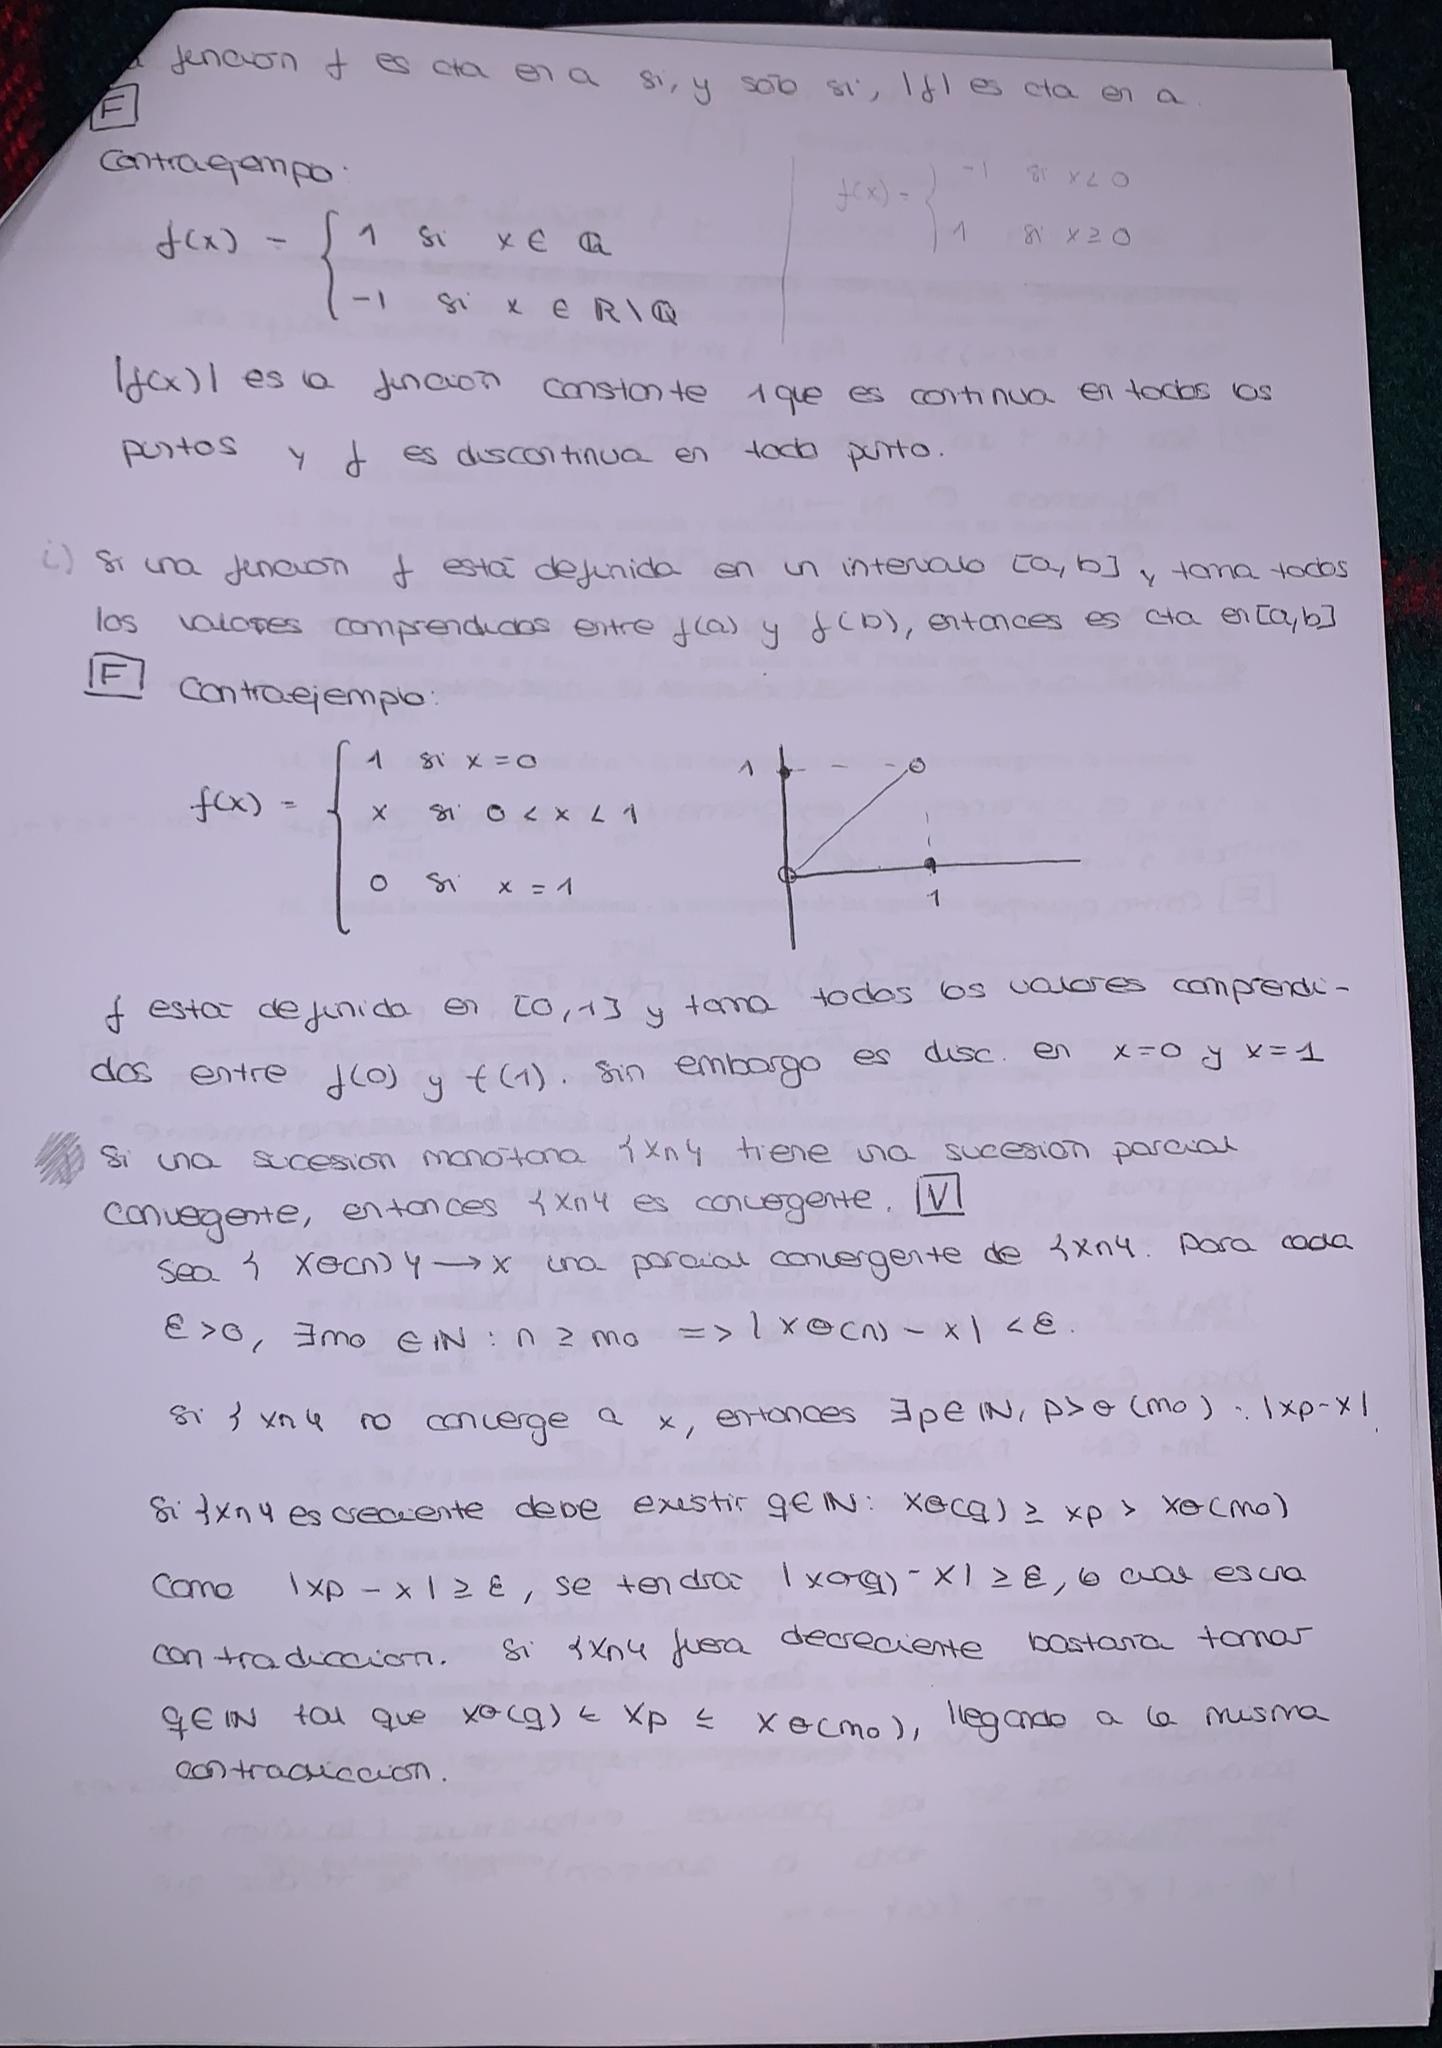 función f es cta en a si, y solo si, |f| es cta en a.
F
Contraejemplo:
f(x) = { 1 si x ∈ Q
-1 si x ∈ R\Q
f(x) = { -1 si x<0
1 si x≥0
|f(x)| es la función constante 1 que es continua en todos los
puntos y f es discontinua en todo punto.
i) Si una función f está definida en un intervalo [a,b] y toma todos
los valores comprendidos entre f(a) y f(b), entonces es cta en [a,b]
F Contraejemplo:
f(x) = { 1 si x=0
x si 0<x<1
0 si x=1
1
1
f está definida en [0,1] y toma todos los valores comprendi-
dos entre f(0) y f(1). Sin embargo es disc. en x=0 y x=1
Si una sucesión monótona {xn} tiene una sucesión parcial
convergente, entonces {xn} es convergente. V
Sea { xσ(n)} → x una parcial convergente de {xn}. Para cada
ε>0, ∃mo ∈ IN : n ≥ mo => | xσ(n) - x| < ε.
Si {xn} no converge a x, entonces ∃p∈IN, p>σ(mo) : |xp-x|
Si {xn} es creciente debe existir q∈IN: xσ(q) ≥ xp > xσ(mo)
Como |xp - x| ≥ ε, se tendrá |xσ(q) - x| ≥ ε, lo cual es una
contradicción. Si {xn} fuera decreciente bastaría tomar
q∈IN tal que xσ(q) ≤ xp ≤ xσ(mo), llegando a la misma
contradicción.